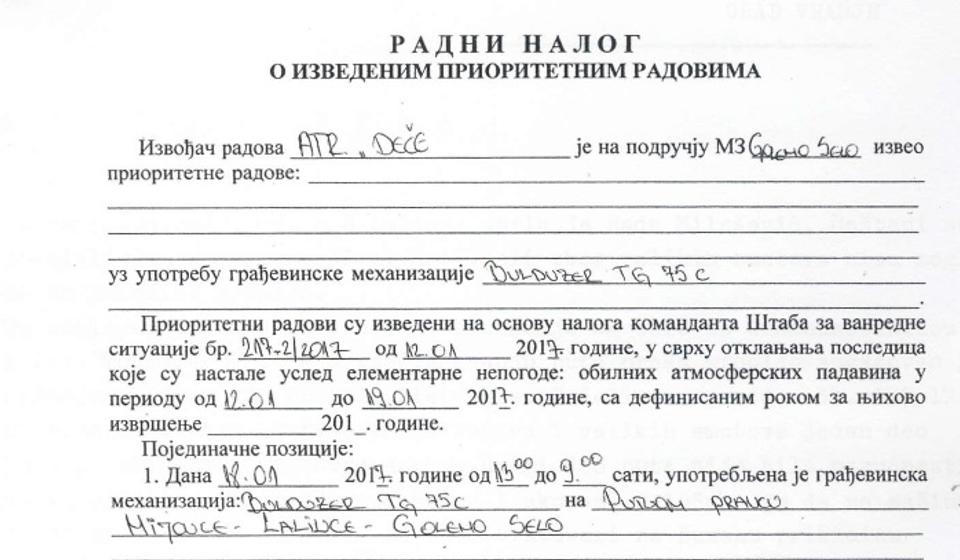 РАДНИ НАЛОГ
О ИЗВЕДЕНИМ ПРИОРИТЕТНИМ РАДОВИМА
Извођач радова ATR. „DEČE је на подручју МЗ GOLEMO SELO извео
приоритетне радове:
уз употребу грађевинске механизације BULDOZER TG 75 C
.
Приоритетни радови су изведени на основу налога команданта Штаба за ванредне
ситуације бр. 217-2/2017 од 12.01 2017. године, у сврху отклањања последица
које су настале услед елементарне непогоде: обилних атмосферских падавина у
периоду од 12.01 до 19.01 2017. године, са дефинисаним роком за њихово
извршење 201_. године.
Појединачне позиције:
1. Дана 18.01 2017. године од 13⁰⁰ до 9.⁰⁰ сати, употребљена је грађевинска
механизација: BULDOZER TG 75C на PUTNOM PRAVCU
MIJOVCE - LALINCE - GOLEMO SELO